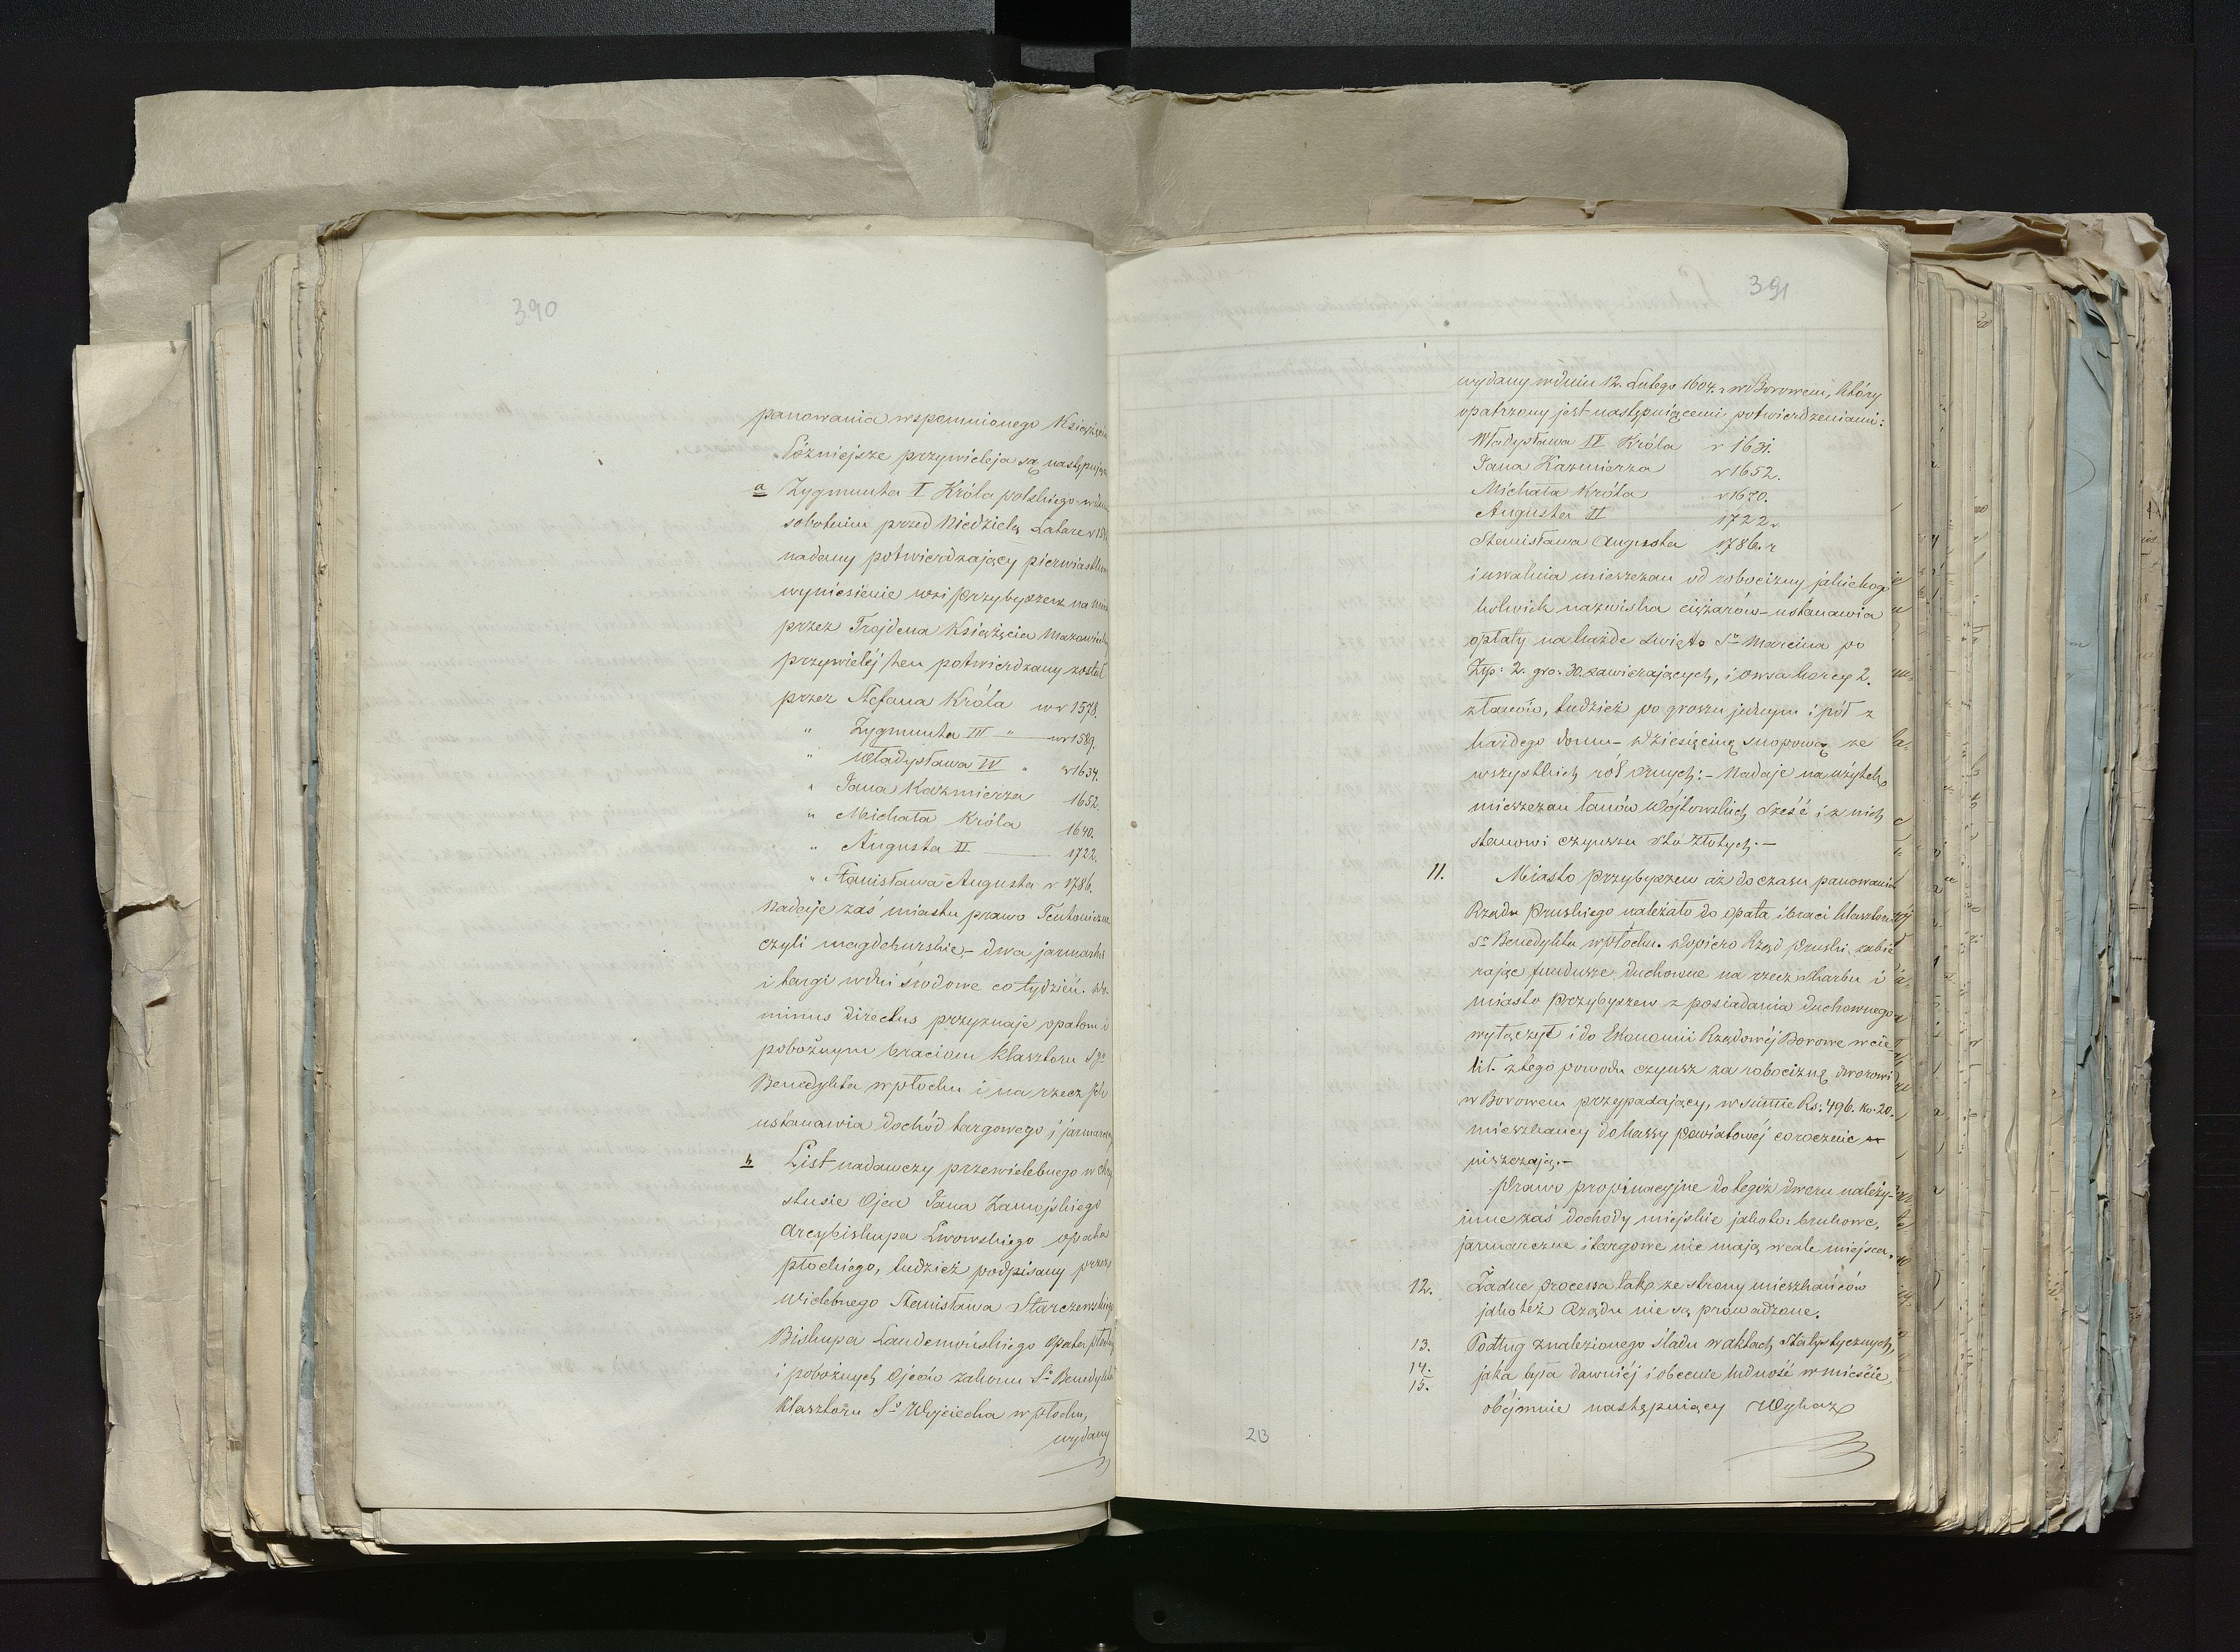 390
panowania wspomnionego Książęcia
Późniejsze przywieleja są następujące
a Zygmunta I Króla polskiego w dniu
sobotnim przed Niedzielą Latare r 15
nadany potwierdzający pierwiastkowe
wyniesienie wsi Przybyszew na mia
przez Trojdena Książęcia Mazowiec
przywiléj ten potwierdzany został
przez Stefana Króla w r 1578.
" Zygmunta III " — w r 1589.
" Władysława IV " r 1634.
" Jana Kazmierza 1652.
" Michała Króla 1640.
" Augusta II — 1722.
" Stanisława Augusta r 1786.
Nadaje zaś miastu prawo Teutoniczne
czyli magdeburskie, – dwa jarmarki
i targi w dni środowe co tydzień. Do-
minus directus przyznaje opatom i
pobożnym braciom klasztoru Sgo
Benedykta w Płocku i na rzecz ich
ustanawia dochód targowego i jarmarcz
b List nadawczy przewielebnego w Chry
stusie Ojca Jana Zamojskiego
Arcybiskupa Lwowskiego opata
płockiego, tudzież podpisany przez
Wielebnego Stanisława Starczewskiego
Biskupa Laudemońskiego Opata płock
i pobożnych Ojców zakonu Sgo Benedykta
Klasztoru Sgo Wojciecha w Płocku,
wydany
391
wydany w dniu 12. Lutego 1604. r w Borowem, który
opatrzony jest następuiącemi potwierdzeniami:
Władysława IV Króla r 1631.
Jana Kazmierza r 1652.
Michała Króla r 1670.
Augusta II 1722 r.
Stanisława Augusta 1786. r
i uwalnia mieszczan od robocizny jakichog
kolwiek nazwiska ciężarów – ustanawia
opłaty na każde święto Sgo Marcina po
Złp: 2. gro: 30. zawierających, i owsa korcy 2.
z łanów, tudzież po groszu jednym i pół z
każdego domu – dziesięcinę snopową ze
wszystkich ról ornych: – Nadaje na użytek
mieszczan łanów Wójtowskich sześć i z nich
stanowi czynszu sto złotych. –
11. Miasto Przybyszew aż do czasu panowania
Rządu Pruskiego należało do opata i braci klasztoru
Sgo Benedykta w Płocku. Dopiero Rząd Pruski zabie
rając fundusze duchowne na rzecz skarbu i
miasto Przybyszew z posiadania duchownego
wyłączył i do Ekonomii Rządowéj Borowe wcie
lił. z tego powodu czynsz za robociznę dworowi
w Borowem przypadający, w summie Rs: 496. ko. 20.
mieszkańcy do kassy Powiatowéj corocznie
niszczają. –
Prawo propinacyjne do tegóż dworu należy –
inne zaś dochody miejskie jakoto: brukowe,
jarmarczne i targowe nie mają wcale miejsca.
12. Żadne processa tak ze strony mieszkańców
jakotéż Rządu nie są prowadzone.
13. Podług znalezionego śladu w aktach Statystycznych,
14. jaka była dawniéj i obecnie ludność w mieście,
15. obéjmuie następuiący Wykaz
213